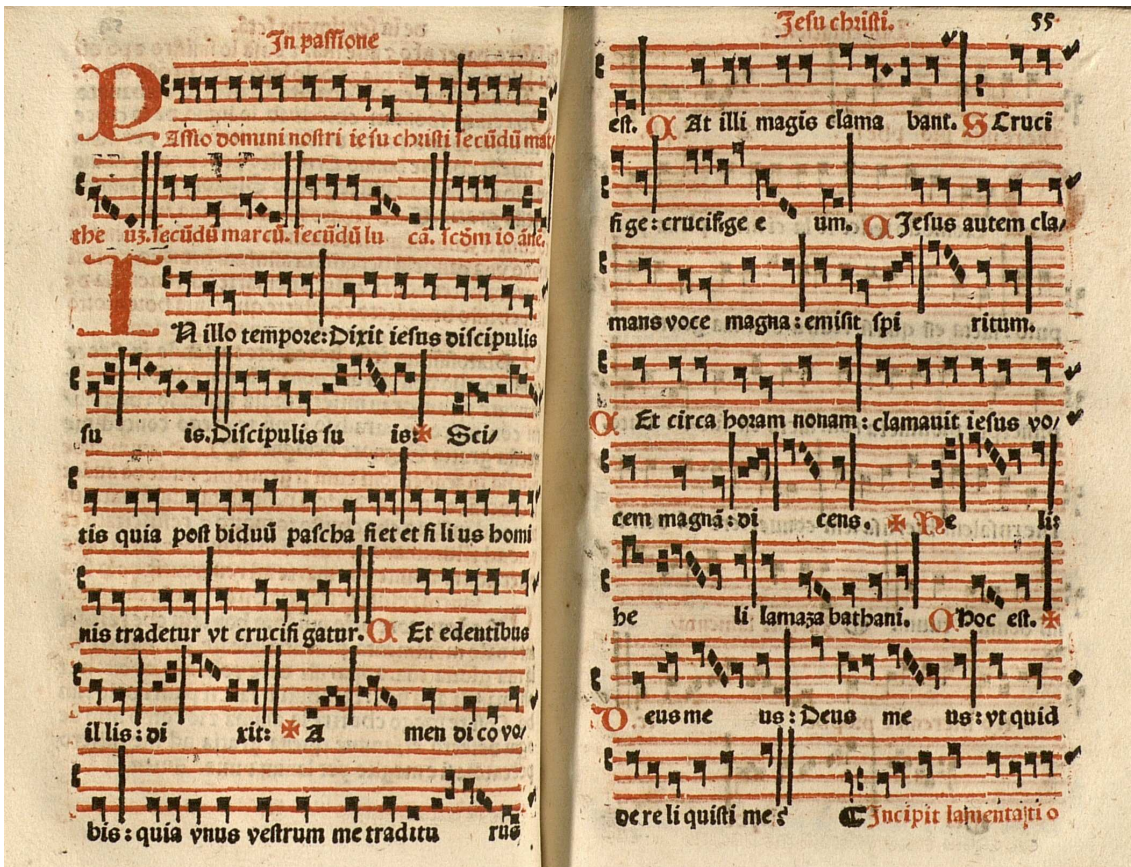 In passione
PAssio domini nostri ie su christi secũdũ mat/
the uʒ. secũdũ marcũ. secũdũ lu cã. scđm io ãnē.
IN illo tempore: Dixit iesus discipulis
su is. Discipulis su is: ✠ Sci/
tis quia post biduũ pascha fiet et fi li us homi
nis tradetur vt crucifi gatur. C Et edentibus
il lis: di xit: ✠ A men di co vo/
bis: quia vnus vestrum me traditu rus
Jesu christi. 55.
est. C At illi magis clama bant. S Cruci
fi ge: crucifige e um. C Jesus autem cla/
mans voce magna: emisit spi ritum.
C Et circa horam nonam: clamauit iesus vo/
cem magnã: di cens. ✠ He li:
he li lamaza bathani. C Hoc est. ✠
Deus me us: Deus me us: vt quid
de re li quisti me? ¶ Incipit lamentatio